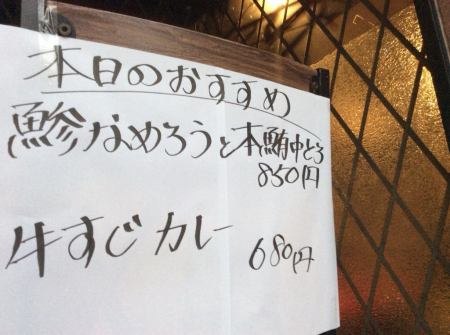 本日のおすすめ
鯵なめろうと本鮪中とろ
850円
牛すじカレー 680円